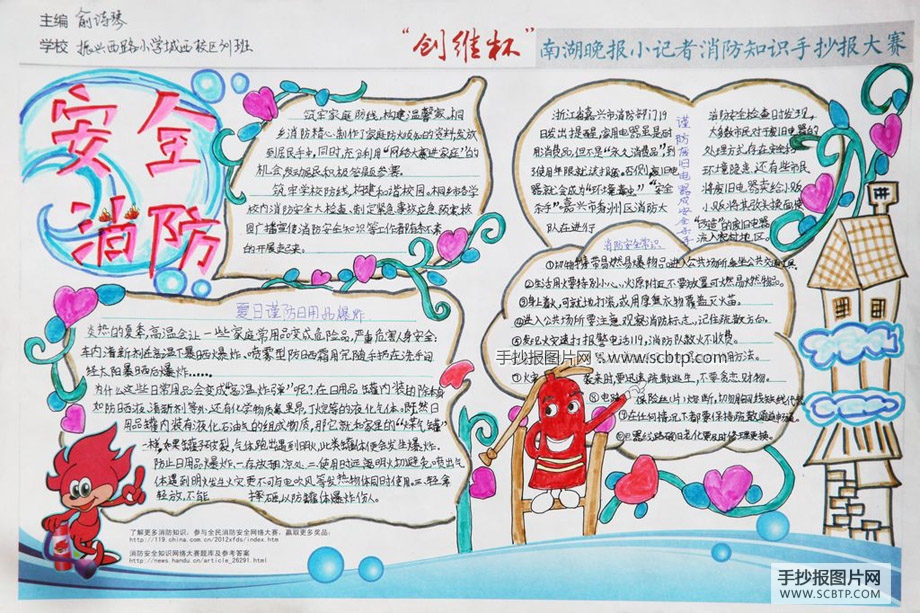 主编 俞诗琴
学校 振兴西路小学城西校区 班
“创维杯”南湖晚报小记者消防知识手抄报大赛
安全
消防
筑牢家庭防线,构建温馨家,桐
乡消防精心制作了家庭防火
到居民手中,同时,充分利用“网络大赛进家庭”的
机会发动居民积极答题参赛。
筑牢学校防线,构建和谐校园。桐乡市各学
校内消防安全大检查、制定紧急事故应急预案、校
园广播宣传消防安全知识等工作
的开展起来。
浙江省嘉兴市消防部门19
日发出提醒,家用电器虽是耐
用消费品,但不是“永久消费品”,到
使用年限就该扔。否则,废旧电
器就会成为“环境毒虫”“安全
杀手”。嘉兴市秀洲区消防大
队在进行
谨防废旧电器成安全杀手
消防安全检查时发现,
大多数市民对于废旧电器的
处理方式存在安全和
环境隐患,还有些市民
将废旧电器卖给小贩,
小贩将其改头换面使
“改造”的废旧电器
流入农村地区。
消防安全常识
①切勿携带易燃易爆物品进入公共场所、乘坐公共交通工具。
②生活用火要特别小心,火源附近不要放置可燃易燃物品。
③身上着火,可就地打滚,或用厚重衣物覆盖灭火苗。
④进入公共场所要注意观察消防标志,记住疏散方向。
⑤发现火灾速打报警电话119,消防队救火不收费。
用方法。
⑦火灾 袭来时,要迅速疏散逃生,不要贪恋财物。
保险丝(片)熔断,切勿用铜丝铁丝代替。
在任何情况下都要保持疏散通道畅通。
电器线路破旧老化要及时修理更换。
夏日谨防日用品爆炸
炎热的夏季,高温会让一些家庭常用品变成危险品,严重危害人身安全:
车内清新剂在高温下暴晒火爆炸、喷雾型防晒霜用完随手扔在洗手间
经太阳暴晒后爆炸……
为什么这些日常用品会变成“高温炸弹”呢?在日用品罐内装
如防晒液、清新剂等外,还有化学物质氟里昂、丁烷等的液化气体。既然日
用品罐内装有液化石油气的组成物质,那它就和家里的“煤气罐”
一样,如果罐子破裂,气体跑出遇到明火,此类罐体便会发生爆炸。
防止日用品爆炸,一在放阴凉处,二使用时远离明火,切避免喷出气
体遇到明火发生火灾,更不可与电吹风等发热物体同时使用。三轻拿
轻放,不能 摔砸,以防罐体爆炸伤人。
了解更多消防知识,参与全民消防安全网络大赛,赢取更多奖品:
http://119.china.com.cn/2012xfds/index.htm
消防安全知识网络大赛题库及参考答案
http://news.handu.cn/article_26291.html
手抄报图片网——www.scbtp.com
手抄报图片网
WWW.SCBTP.COM